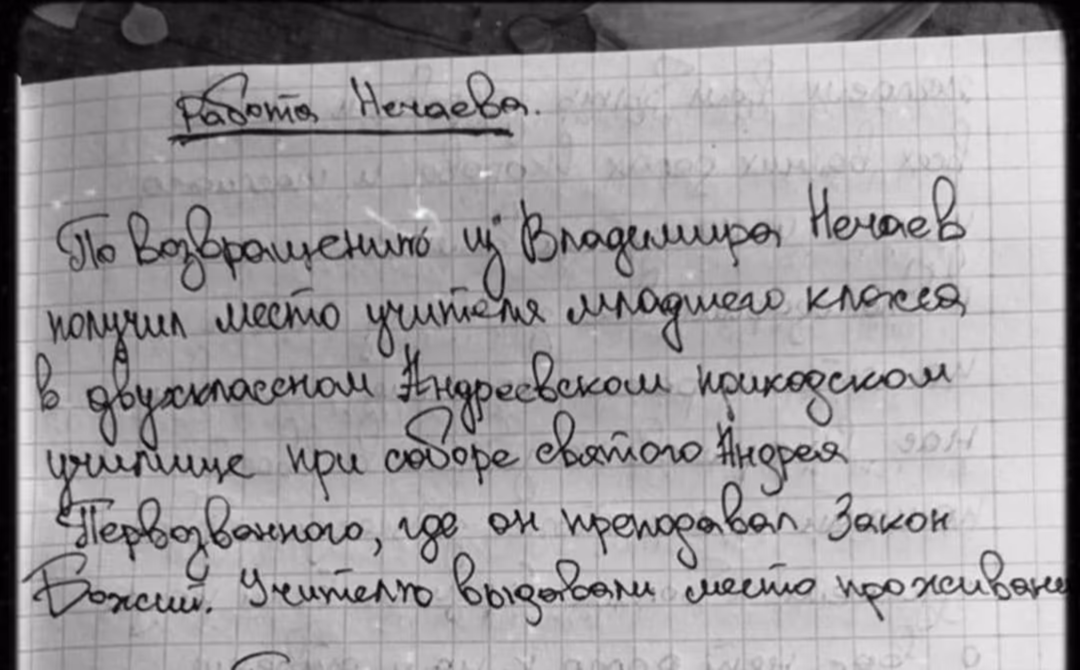 Работа Нечаева.
По возвращению из Владимира Нечаев
получил место учителя младшего класса
в двухклассном Андреевском приходском
училище при соборе святого Андрея
Первозванного, где он преподавал Закон
Божий. Учителю выдавали место прожívани